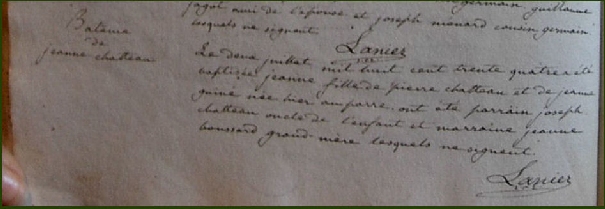 germain guillaume
jagot ami de l'épouse et joseph menard cousin germain
lesquels ne signent
Lanier
Bateme
de
jeanne chatteau
Le deux juillet mil huit cent trente quatre a été
baptizée jeanne fille de pierre chatteau et de jeanne
guiné née hier ont été parrain joseph
chatteau oncle de l'enfant et marraine jeanne
boussard grand-mère lesquels ne signent
Lanier